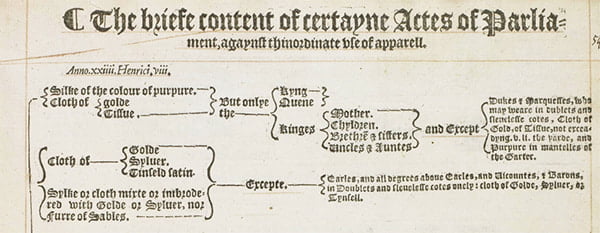 ¶ The briefe content of certayne Actes of Parlia=
ment, agaynst thinordinate vse of apparell.
Anno.xxiiii.Henrici.viii.
Silke of the colour of purpure.
Cloth of golde
Tissue.
But onlye
the
Kyng
Quene
Kinges
Mother.
Chyldren.
Brethrē & sisters.
Uncles & Auntes
and Except
Dukes & Marquesses, who
may weare in dublets and
sleuelesse cotes, Cloth of
Gold, of Tissue, not excea-
dyng. v. li. the yarde, and
Purpure in mantelles of
the Garter.
Cloth of
Golde
Syluer.
Tinseld satin.
Sylke or cloth mixte or imbrode-
red with Golde or Syluer, nor
Furre of Sables.
Excepte.
Earles, and all degrees aboue Earles, and Uicountes, & Barons,
in Doublets and sleuelesse cotes onely: cloth of Golde, Syluer, or
Tynsell.